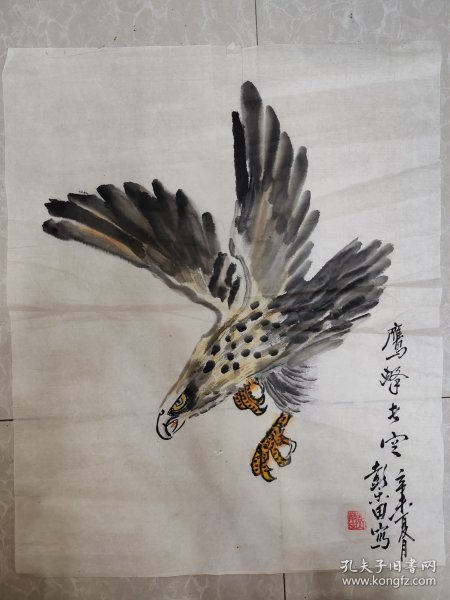 鹰击长空
辛未夏月
彭本田写
孔夫子旧书网
www.kongfz.com